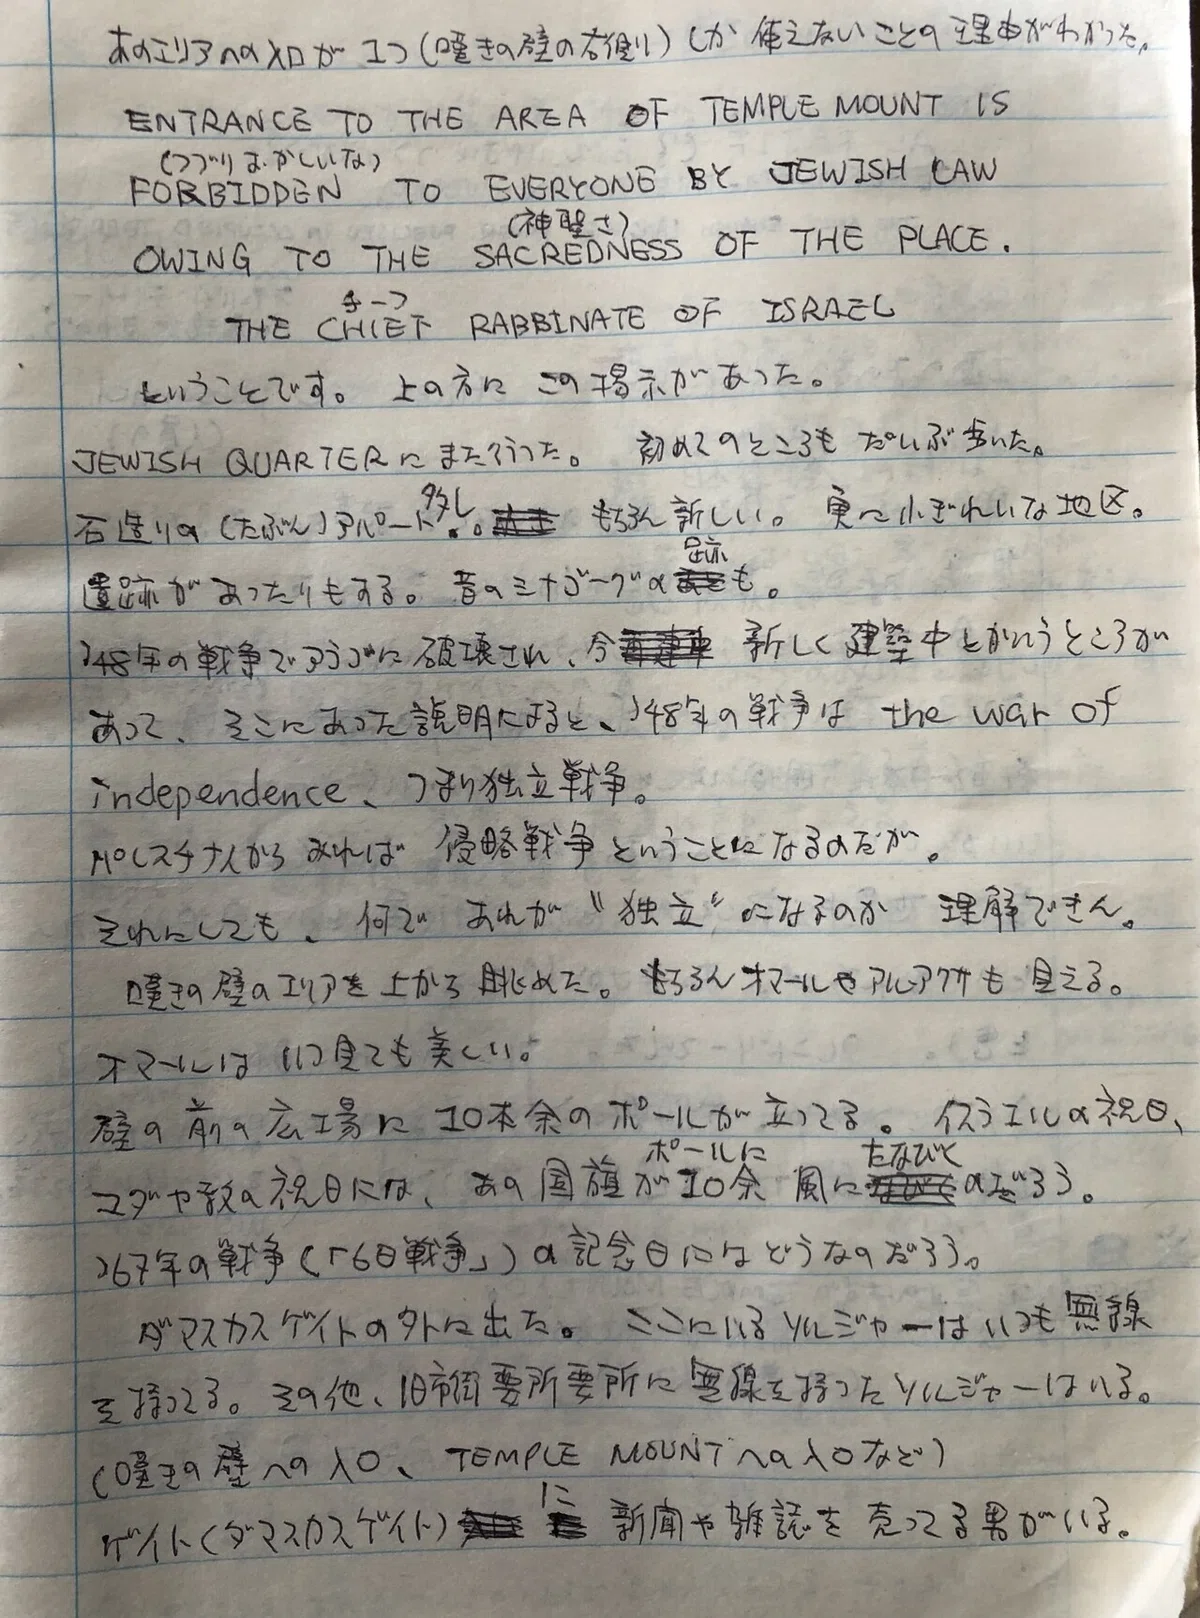 あのエリアへの入口が1つ(嘆きの壁の右側)しか使えないことの理由がわかった。
ENTRANCE TO THE AREA OF TEMPLE MOUNT IS
(つづりおかしいな)
FORBIDDEN TO EVERYONE BY JEWISH LAW
(神聖さ)
OWING TO THE SACREDNESS OF THE PLACE.
チーフ
THE CHIEF RABBINATE OF ISRAEL
ということです。 上の方に この掲示があった。
JEWISH QUARTERにまた行った。 初めてのところもだいぶ歩いた。
石造りの(たぶん)アパート多し。 もちろん新しい。 実に小ぎれいな地区。
遺跡があったりもする。 昔のシナゴーグの跡も。
'48年の戦争でアラブに破壊され、今 新しく建築中とかいうところが
あって、そこにあった説明によると、'48年の戦争は the war of
independence、つまり独立戦争。
パレスチナ人からみれば 侵略戦争ということになるのだが。
それにしても、何で あれが“独立”になるのか 理解できん。
嘆きの壁のエリアを上から眺めた。 もちろんオマールやアルアクサも見える。
オマールはいつ見ても美しい。
壁の前の広場に10本余のポールが立ってる。 イスラエルの祝日、
ユダヤ教の祝日には、あの国旗がポールに10余 風にたなびくのだろう。
'67年の戦争(「6日戦争」)の記念日にはどうなのだろう。
ダマスカスゲイトの外に出た。 ここにいるソルジャーはいつも無線
を持ってる。その他、旧市街要所要所に無線を持ったソルジャーはいる。
(嘆きの壁への入口、TEMPLE MOUNTへの入口など)
ゲイト(ダマスカスゲイト)に 新聞や雑誌を売ってる男がいる。